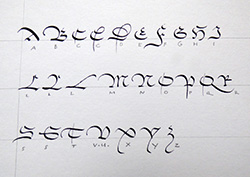 A B C C D E F G H I
A B C C D E F G H I
L L L M N O P Q R
L L L M N O P Q R
S S T V X Y Z
S S T V+U X Y Z